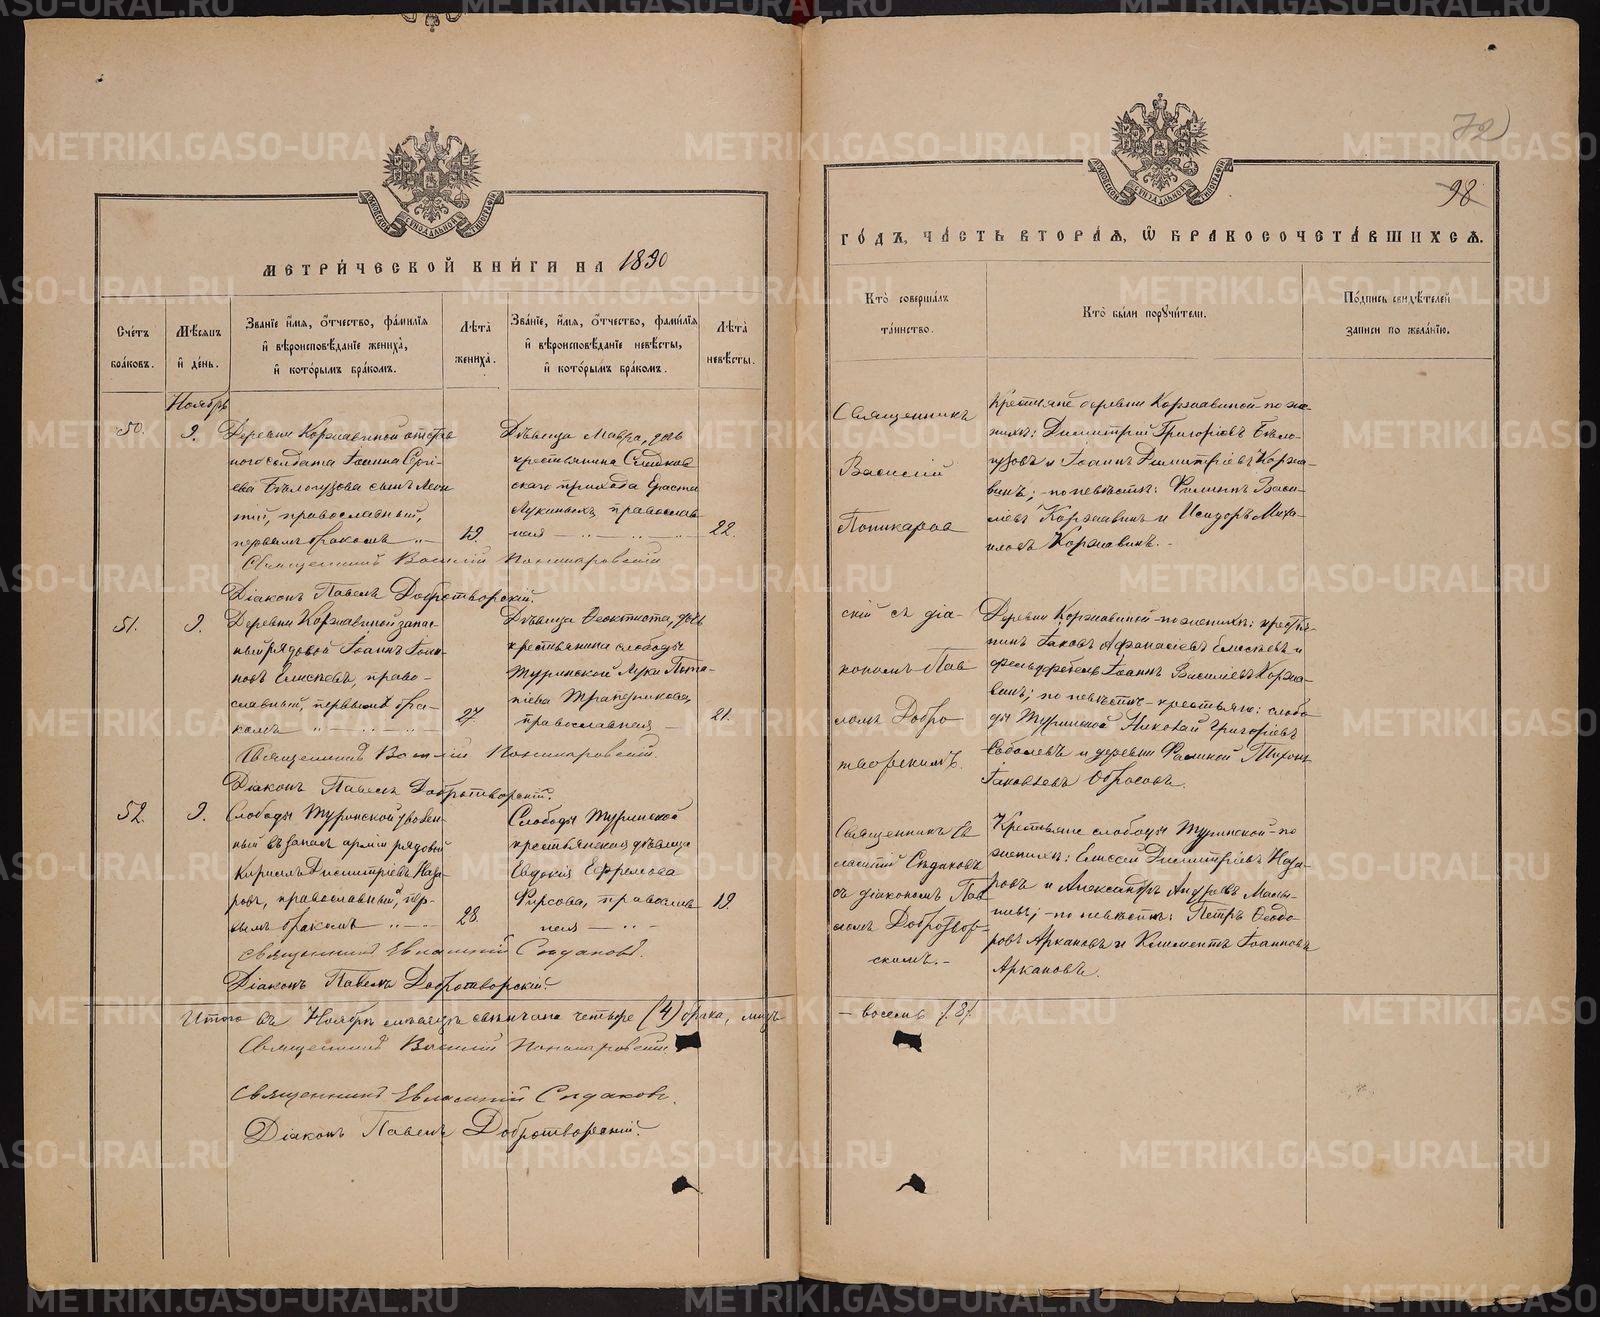 МЕТРИ́ЧЕСКОЙ КНИ́ГИ НА 1890
Сче́тъ бра́ковъ.
Мѣ́сяцъ и҆ де́нь.
Зва́нїе и҆́мѧ, ѻ҆́тчество, фамилїѧ и҆ вѣроисповѣ́данїе жениха̀, и҆ кото́рымъ бра́комъ.
Лѣ́та жениха̀.
Зва́нїе, и҆́мѧ, ѻ҆́тчество, фамилїѧ и҆ вѣроисповѣ́данїе невѣ́сты, и҆ кото́рымъ бра́комъ.
Лѣ́та невѣ́сты.
Ноябрь
50.
9.
Деревни Коржавиной отстав
наго солдата Іоанна Сергі-
ева Бѣлогузова сынъ Леон
тій, православный,
первымъ бракомъ
19.
Дѣвица Мавра, дочь
крестьянина
скаго прихода
Лукиныхъ, православ
ная
22.
Священникъ Василій Поникаровскій
Діаконъ Павелъ Добротворскій.
51.
9.
Деревни Коржавиной запас-
ный рядовой Іоаннъ Іоан-
новъ Елисѣевъ, право-
славный, первымъ бра-
комъ
27.
Дѣвица Ѳеоктиста, дочь
крестьянина слободы
Туринской Луки Пота-
піева Трапезникова,
православная
21.
Священникъ Василій Поникаровскій.
Діаконъ Павелъ Добротворскій.
52.
9.
Слободы Туринской уволен-
ный въ запасъ арміи рядовой
Кириллъ Димитріевъ Наза-
ровъ, православный, пер-
вымъ бракомъ
28.
Слободы Туринской
крестьянская дѣвица
Евдокія Ефремова
Фирсова, православ
ная
19
Священникъ Евлампій Сѣдаковъ.
Діаконъ Павелъ Добротворскій.
Итого въ Ноябрѣ мѣсяцѣ свѣнчано четыре (4) брака, лицъ
Священникъ Василій Поникаровскій
Священникъ Евлампій Сѣдаковъ.
Діаконъ Павелъ Добротворскій.
72
98
ГО́ДЪ, ЧА́СТЬ ВТОРА́Ѧ, Ѡ҆ БРАКОСОЧЕТА́ВШИХСѦ.
Кто̀ соверша́лъ та́инство.
Кто̀ бы́ли порꙋчи́тели.
По́дпись свидѣ́телей записи по жела́нїю.
Священникъ
Василій
Поникаров
скій съ діа-
кономъ Пав
ломъ Добро
творскимъ.
Крестьяне деревни Коржавиной по же-
ниху: Димитрій Григоріевъ Бѣло-
гузовъ и Іоаннъ Димитріевъ Коржа-
винъ; по невѣстѣ: Филиппъ Васи-
ліевъ Коржавинъ и Исидоръ Миха-
иловъ Коржавинъ.
Деревни Коржавиной по женихѣ: крестья-
нинъ Іаковъ Афанасіевъ Елисѣевъ и
фельдфебель Іоаннъ Василіевъ Коржа-
винъ; по невѣстѣ крестьяне: слобо
ды Туринской Николай Григоріевъ
Соболевъ и деревни Фалиной Тихонъ
Іаковлевъ Обросовъ.
Священникъ Ев
лампій Сѣдаковъ
съ діакономъ Пав
ломъ Добротвор-
скимъ.
Крестьяне слободы Туринской по
женихѣ: Елисей Димитріевъ Наза-
ровъ и Александръ Андреевъ Малы-
шевъ; по невѣстѣ: Петръ Ѳеодо-
ровъ Аркановъ и Климентъ Іоанновъ
Аркановъ.
восемь /8/.
METRIKI.GASO-URAL.RU